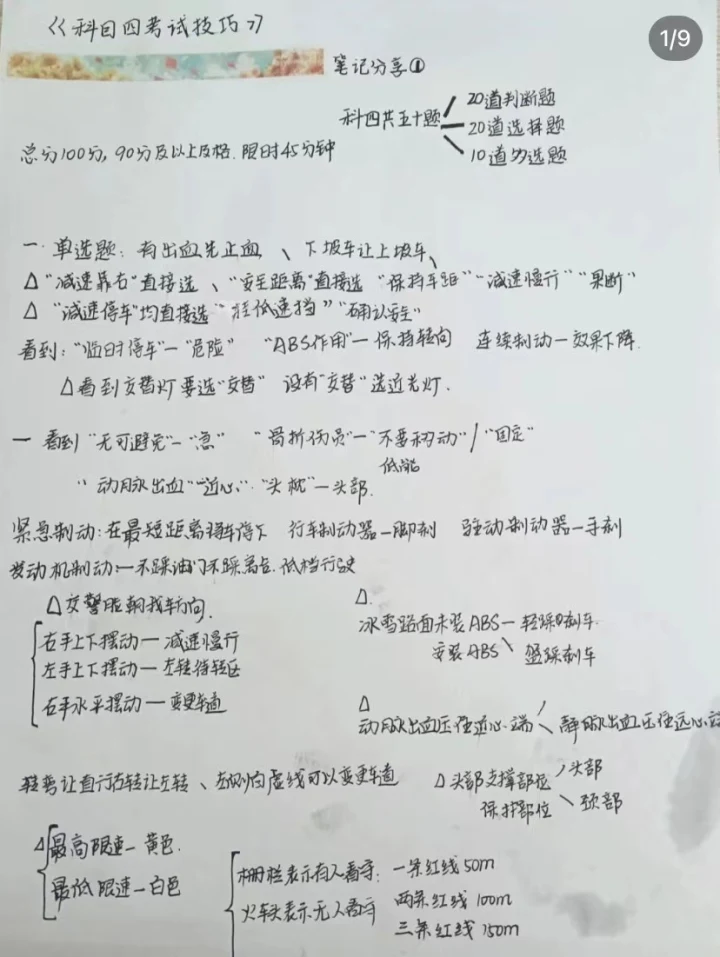 《科目四考试技巧》
1/9
笔记分享①
科四共五十题
20道判断题
20道选择题
10道多选题
总分100分,90分及以上及格.限时45分钟
一.单选题:有出血先止血、下坡车让上坡车、
△"减速靠右"直接选、"安全距离"直接选 "保持车距""减速慢行""果断"
△"减速停车"均直接选"挂低速挡""确认安全"
看到:"临时停车"一"危险" "ABS作用"一保持转向 连续制动一效果下降.
△看到交替灯要选"交替" 没有"交替"选近光灯.
一 看到"无可避免"-"急" "骨折伤员"一"不要移动"/"固定"
"动脉出血""近心"."头枕"一头部.
紧急制动:在最短距离将车停下 行车制动器一脚刹 驻动制动器一手刹
发动机制动:一不踩油门不踩离合.低档行驶
△交警脸朝我车方向.
右手上下摆动一减速慢行
左手上下摆动一左转待转区
右手水平摆动一变更车道
△.
冰雪路面未装ABS一轻踩刹车.
安装ABS、 刹车
△
动脉出血压住近心端
静脉出血压住远心端
转弯让直行右转让左转、左侧向虚线可以变更车道
△头部支撑部位 头部
保护部位 颈部
△最高限速一黄色.
最低限速一白色
栅栏表示有人看守:
火车头表示无人看守
一条红线50m
两条红线100m
三条红线150m